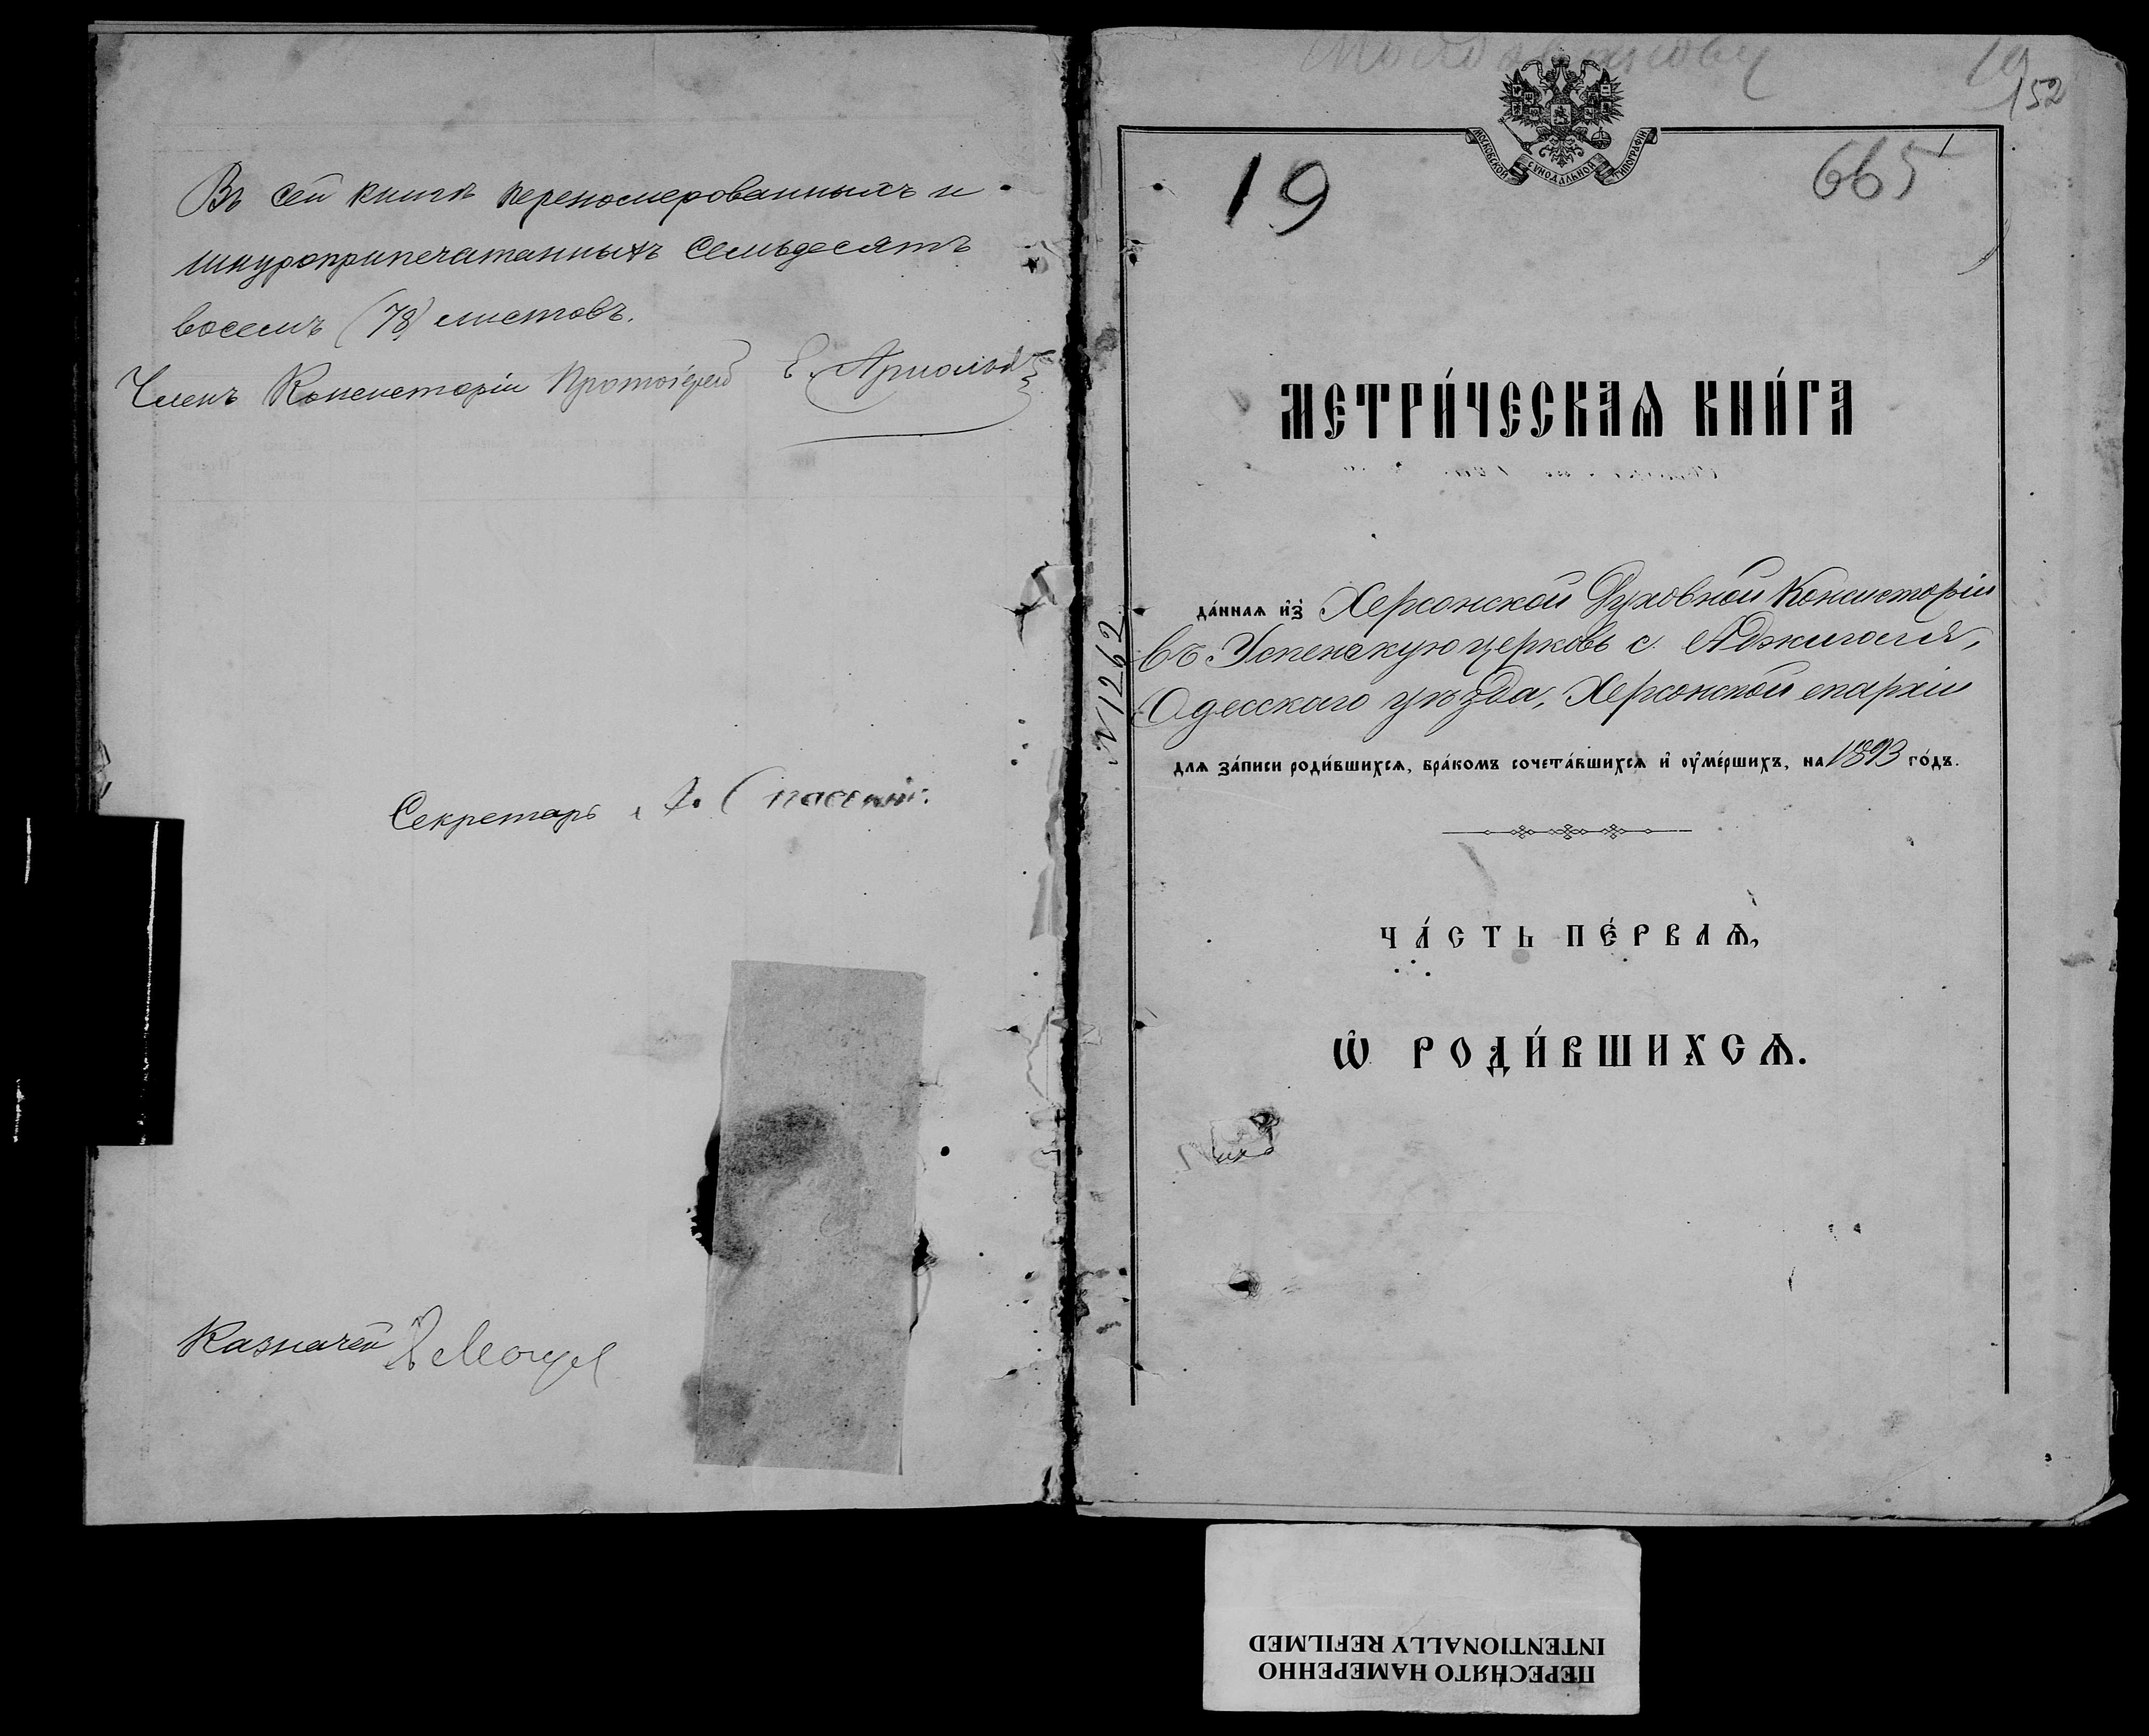 Въ сей книгѣ переномерованныхъ и
шнуроприпечатанныхъ семьдесятъ
восемь (78) листовъ.
Членъ Консисторіи Протоіерей Е.
Секретарь Спасскій.
Казначей
19
152
МОСКОВСКОЙ СѴНОДАЛЬНОЙ ТИПОГРАФІИ
19
665
МЕТРИ́ЧЕСКАѦ КНИ́ГА
да́ннаѧ и҆з̾ Херсонской Духовной Консисторіи
въ Успенскую церковь с. Аджигола,
Одесскаго уѣзда, Херсонской епархіи
длѧ за́писи роди́вшихсѧ, бра́комъ сочета́вшихсѧ и҆ оу҆ме́ршихъ, на 1893 го́дъ.
№ 1262
ЧА́СТЬ ПЕ́РВАѦ,
Ѡ҆ РОДИ́ВШИХСѦ.
ПЕРЕСНЯТО НАМЕРЕННО
INTENTIONALLY REFILMED